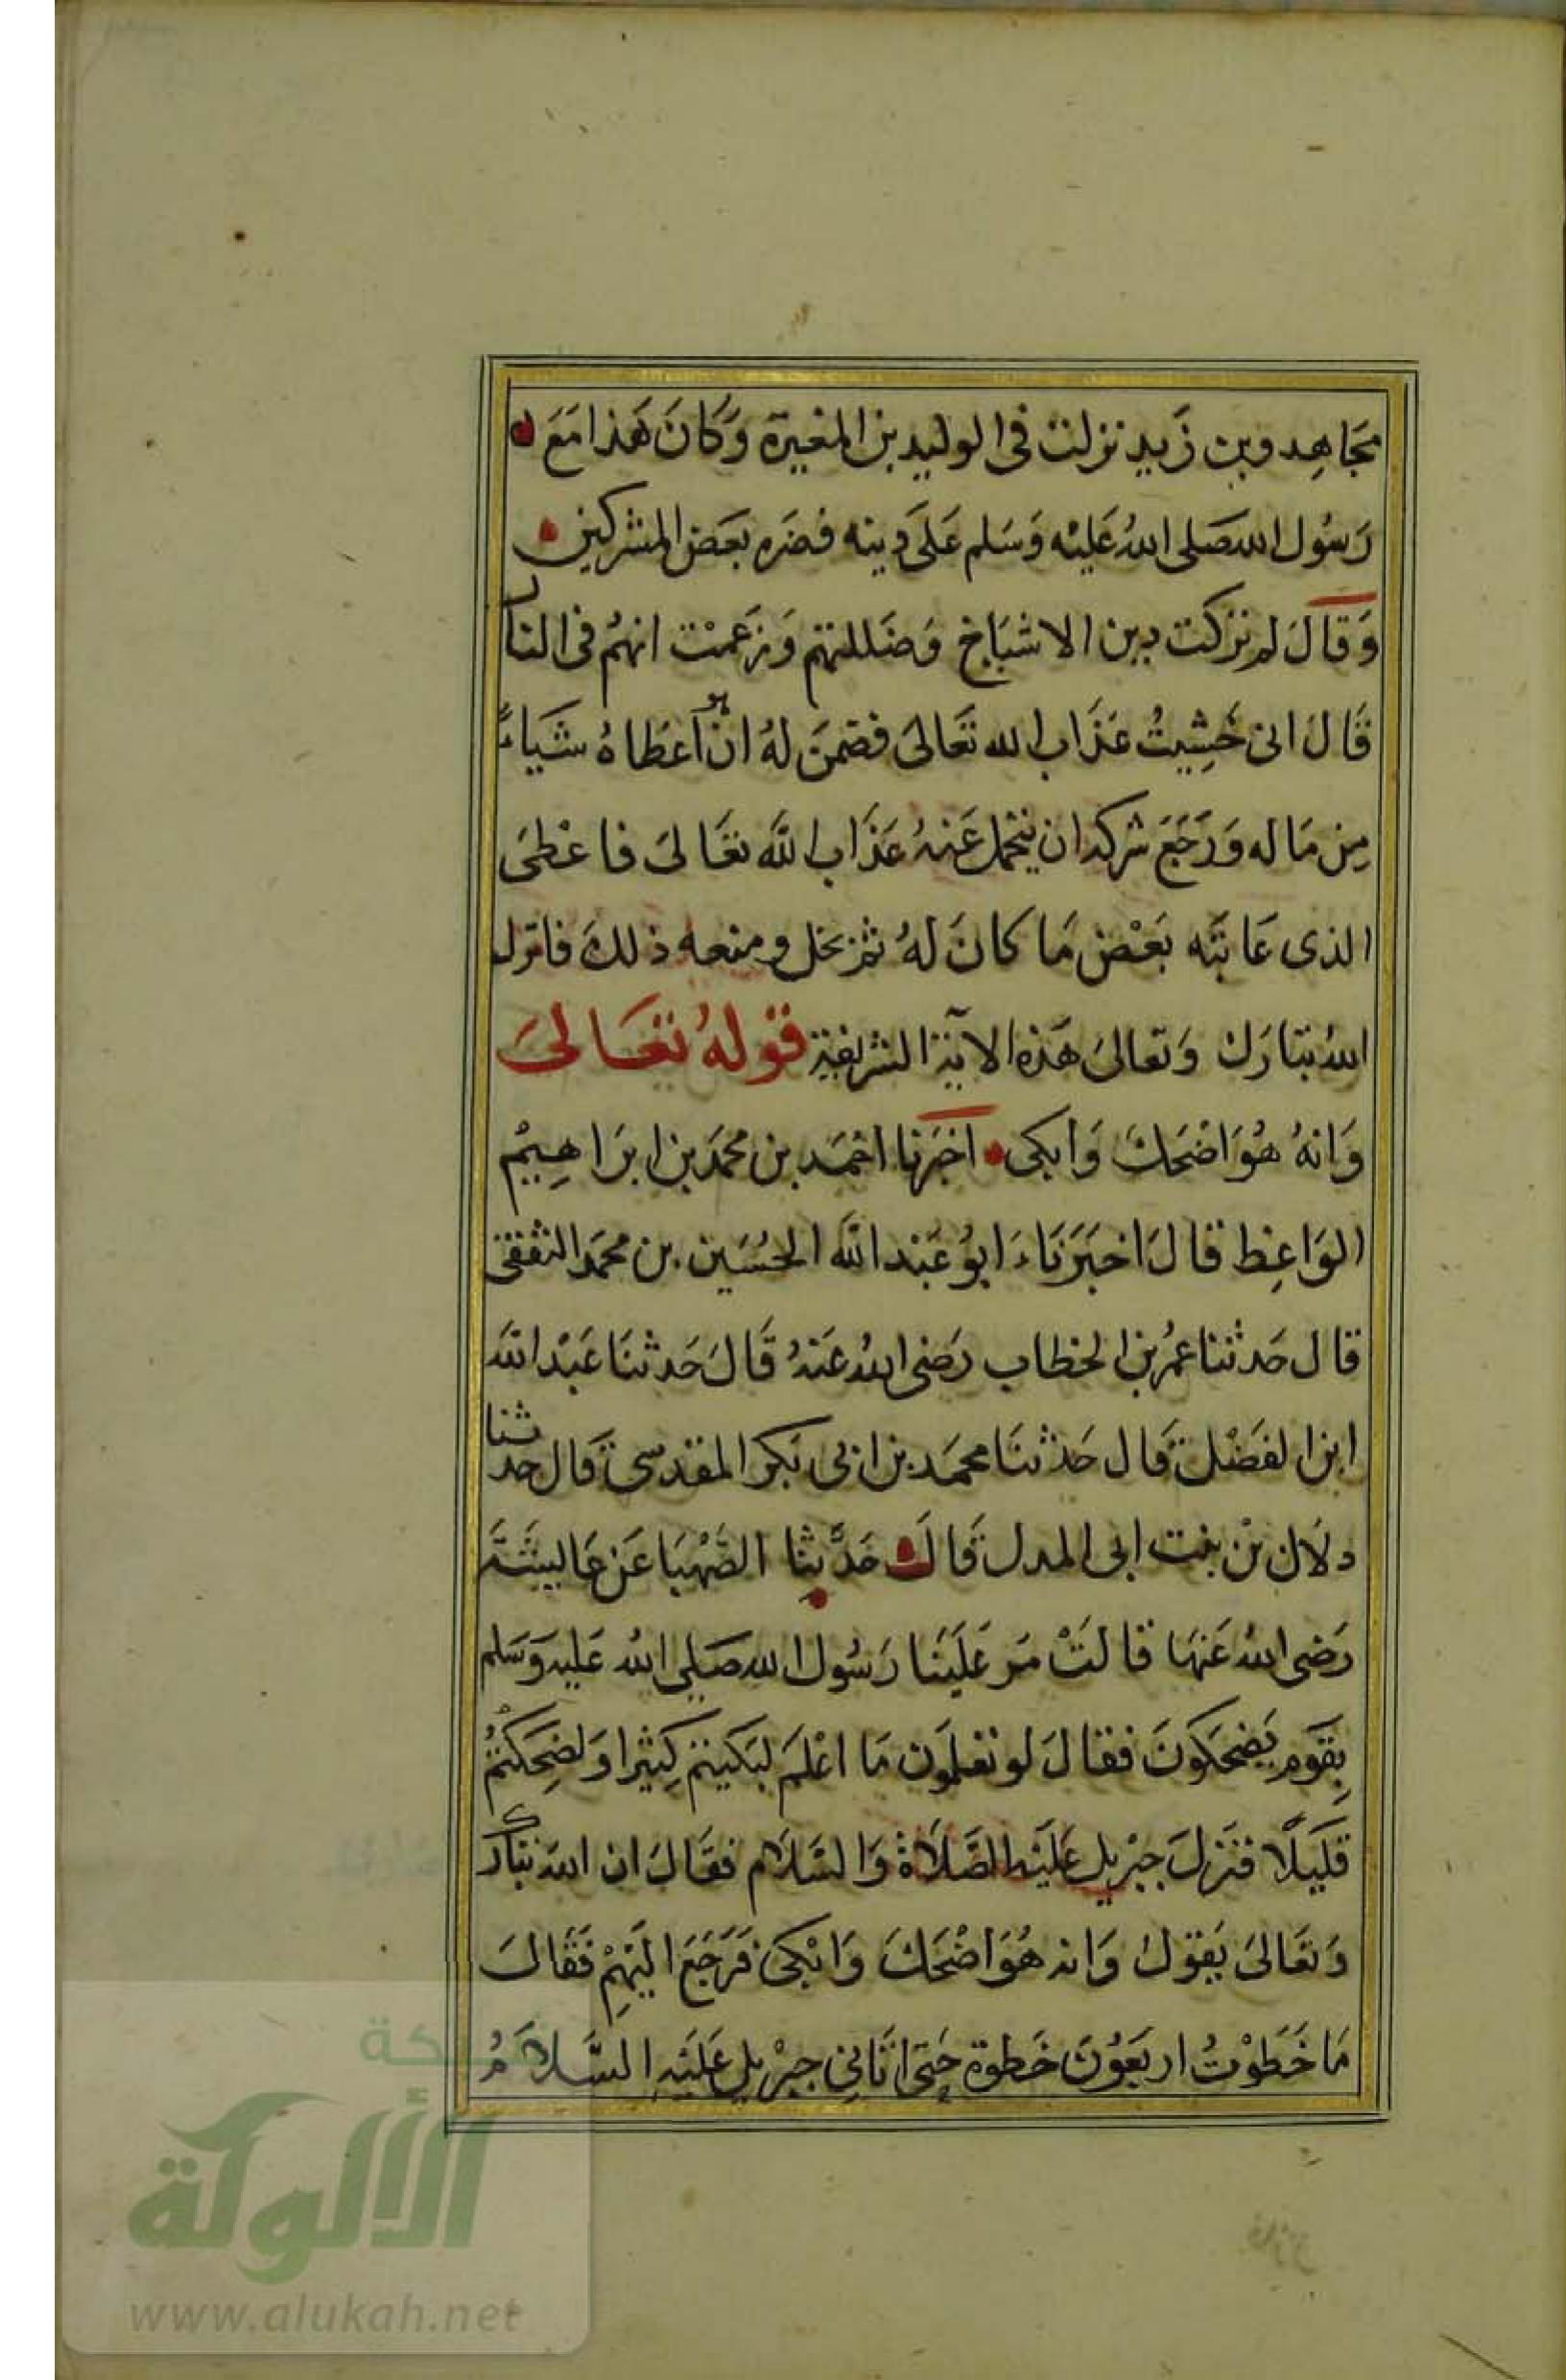 مجَاهِد وبن زَيد نزلت فى الوليد بن المغيرة وَكانَ هَذا مَعَ
رَسُول الله صَلى اللهُ عَليْه وَسَلم عَلَى دينه فضره بعَض المشركين
وَقالَ لم تركت دين الاشيَاخ وَضَللتهم وَزعَمْت انهُم فى النار
قَالَ انى خَشِيتُ عَذَاب الله تعَالىَ فضمَنَ لهُ ان هو اَعطاهُ شيَاءً
مِن مَاله وَرَجَعَ شركه ان يتحمل عَنهُ عَذَاب اللَّه تعَالىَ فاعْطىَ
الذى عَاتبَه بَعْض مَا كانَ لهُ ثم بخل ومنعه ذلكَ فانزل
اللهُ تبَارَك وَتعالىَ هَذه الآية الشريفة قولهُ تعَالىَ
وَانهُ هُوَ اضْحَكَ وَابكى اخبَرنا احْمَد بن محمَد بن ابرَاهِيمْ
الوَاعِظ قالَ اخبَرَنَاءَ ابوُ عَبْد الله الحُسَين بن محمَد الثقفى
قال حَدثنا عمُر بن الخطاب رَضى اللهُ عَنهُ قَالَ حَدثنَا عَبْد الله
ابن الفضْل قَال حَدثنَا محمَد بن ابى بَكر المقدسى قَال حدثنا
دلاَل بْن بنت ابى المدل قَالَ حَدَّثنا الصَّهْبَا عَن عَاليشَة
رَضى اللهُ عَنهَا قالتْ مَر عَلَينَا رَسُول الله صَلى الله عَليه وَسَلم
بِقوَم يَضحكونَ فقالَ لو تعلمَون مَا اعْلمَ لبَكيتم كِثيرا وَلضحِكتُمُ
قليَلًا فنزلَ جبْريل عَليَه الصَّلاَة وَالسَّلاَم فقالَ ان الله تبارك
وَتعَالىَ يَقولُ وَانه هُوَ اضْحَكَ وَابْكىَ فرَجَعَ اليَهِمْ فَقَالَ
مَا خَطوْتُ اربَعوُنَ خَطوة حَتى اتَانِى جبْريل عَليَهِ السَّلاَمُ
الألوكة
www.alukah.net